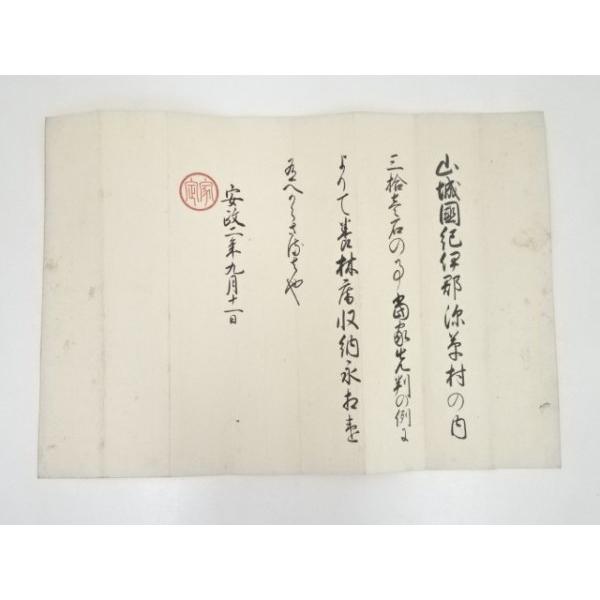 山城國紀伊郡深草村の内
三拾壱石の事當家先判の例に
よりて養林庵収納永相違
有へからさるもの也
安政二年九月十一日
家定